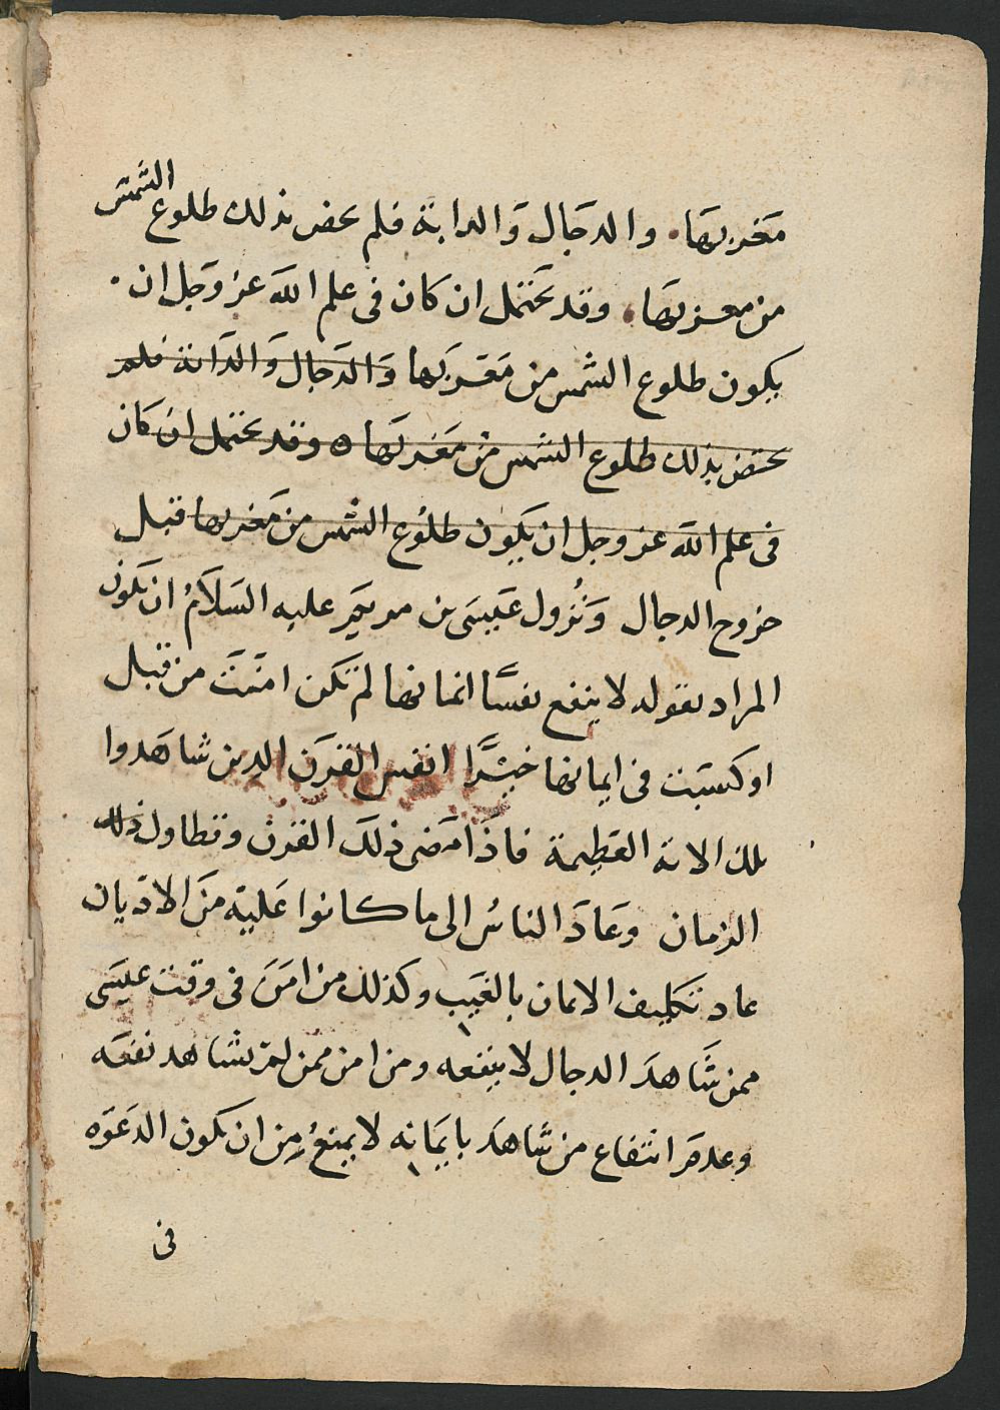 مَغربهَا. والدجَال وَالدابة فلم يخص بذلك طلوع الشمس
من مغربهَا. وقد يَحتمل ان كان فى علم اللّه عز وَجل ان.
يكون طلوع الشمس من مَغربَها وَالدَجال وَالدَابة فلم
يختص بذلك طلوع الشمس من مَغربَها ه وقد يحتمل ان كَان
فى علم اللّه عز وجل ان يَكون طلوُع الشمس من مَغربها قبل
خروج الدجال وَنُزول عَيسَى بن مريَم عليه السَلاَمُ ان تكون
المراد بقوله لا ينفع نفسًا ايمانها لم تكن امَنَت من قبل
او كسَبت فى ايمانها خيَرًا انفس القرَن الدين شاهَدوا
تلك الاية العَظِيمة فاذَا مَضى ذلكَ القرن وتطاول ذلك
الزمان وعَادَ الناسُ الى ما كانوا عَليَه مَن الاَديان
عاد تكليف الايمان بالغَيب وكذلك من امَنَ فى وقت عيسَى
ممن شَاهدَ الدجال لا ينفعه ومن امن ممن لم يشاهد نفعَه
وعدمَ انتفاع من شَاهدَ بايمَانه لا يمنعُ مِن ان تكون الدَعوَه
فى